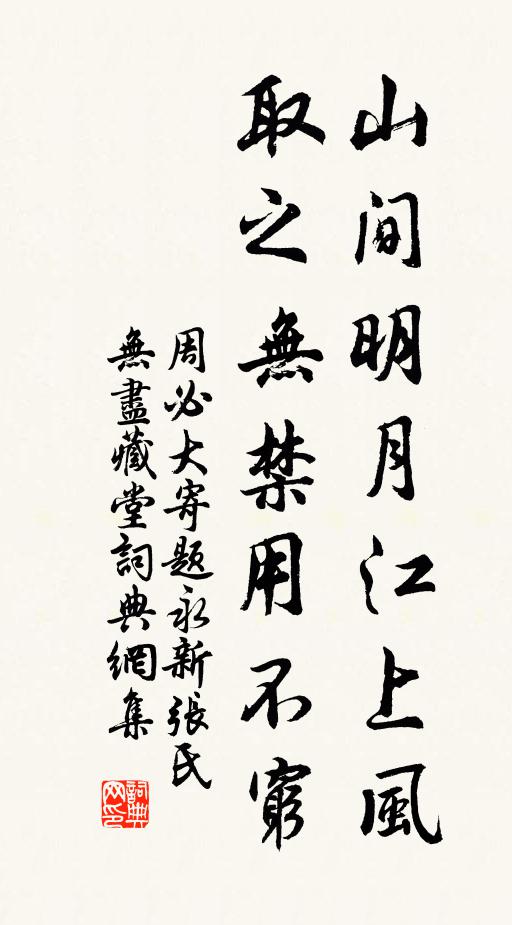 山间明月江上風
取之無禁用不窮
周必大寄题永新張氏
無盡藏堂詞典網集
詞典网印